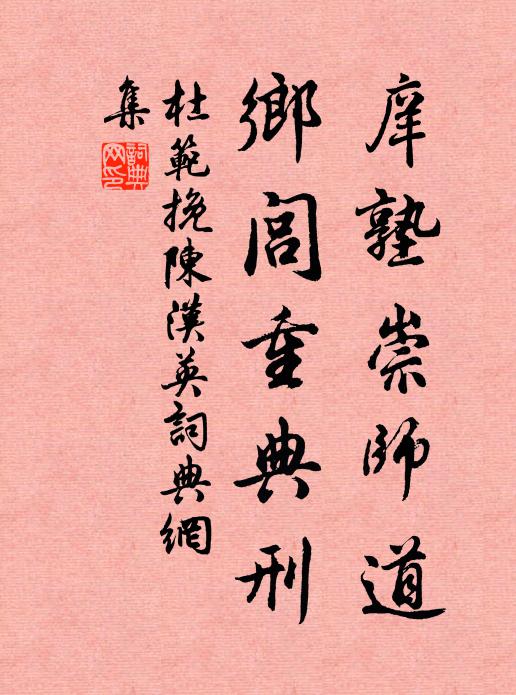 庠塾崇師道
鄉閭重典刑
杜範挽陳漢英詞典網
集
詞典网印